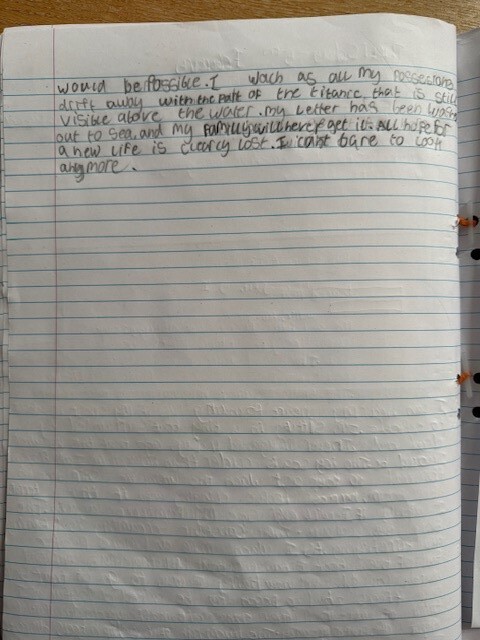 would be possible. I wach as all my possecions
drift away with the part of the titance that is still
visible above the water. my letter has been wash
out to sea. and my family will never get it. All hope for
a new life is clearly lost. I cant bare to look
any more.